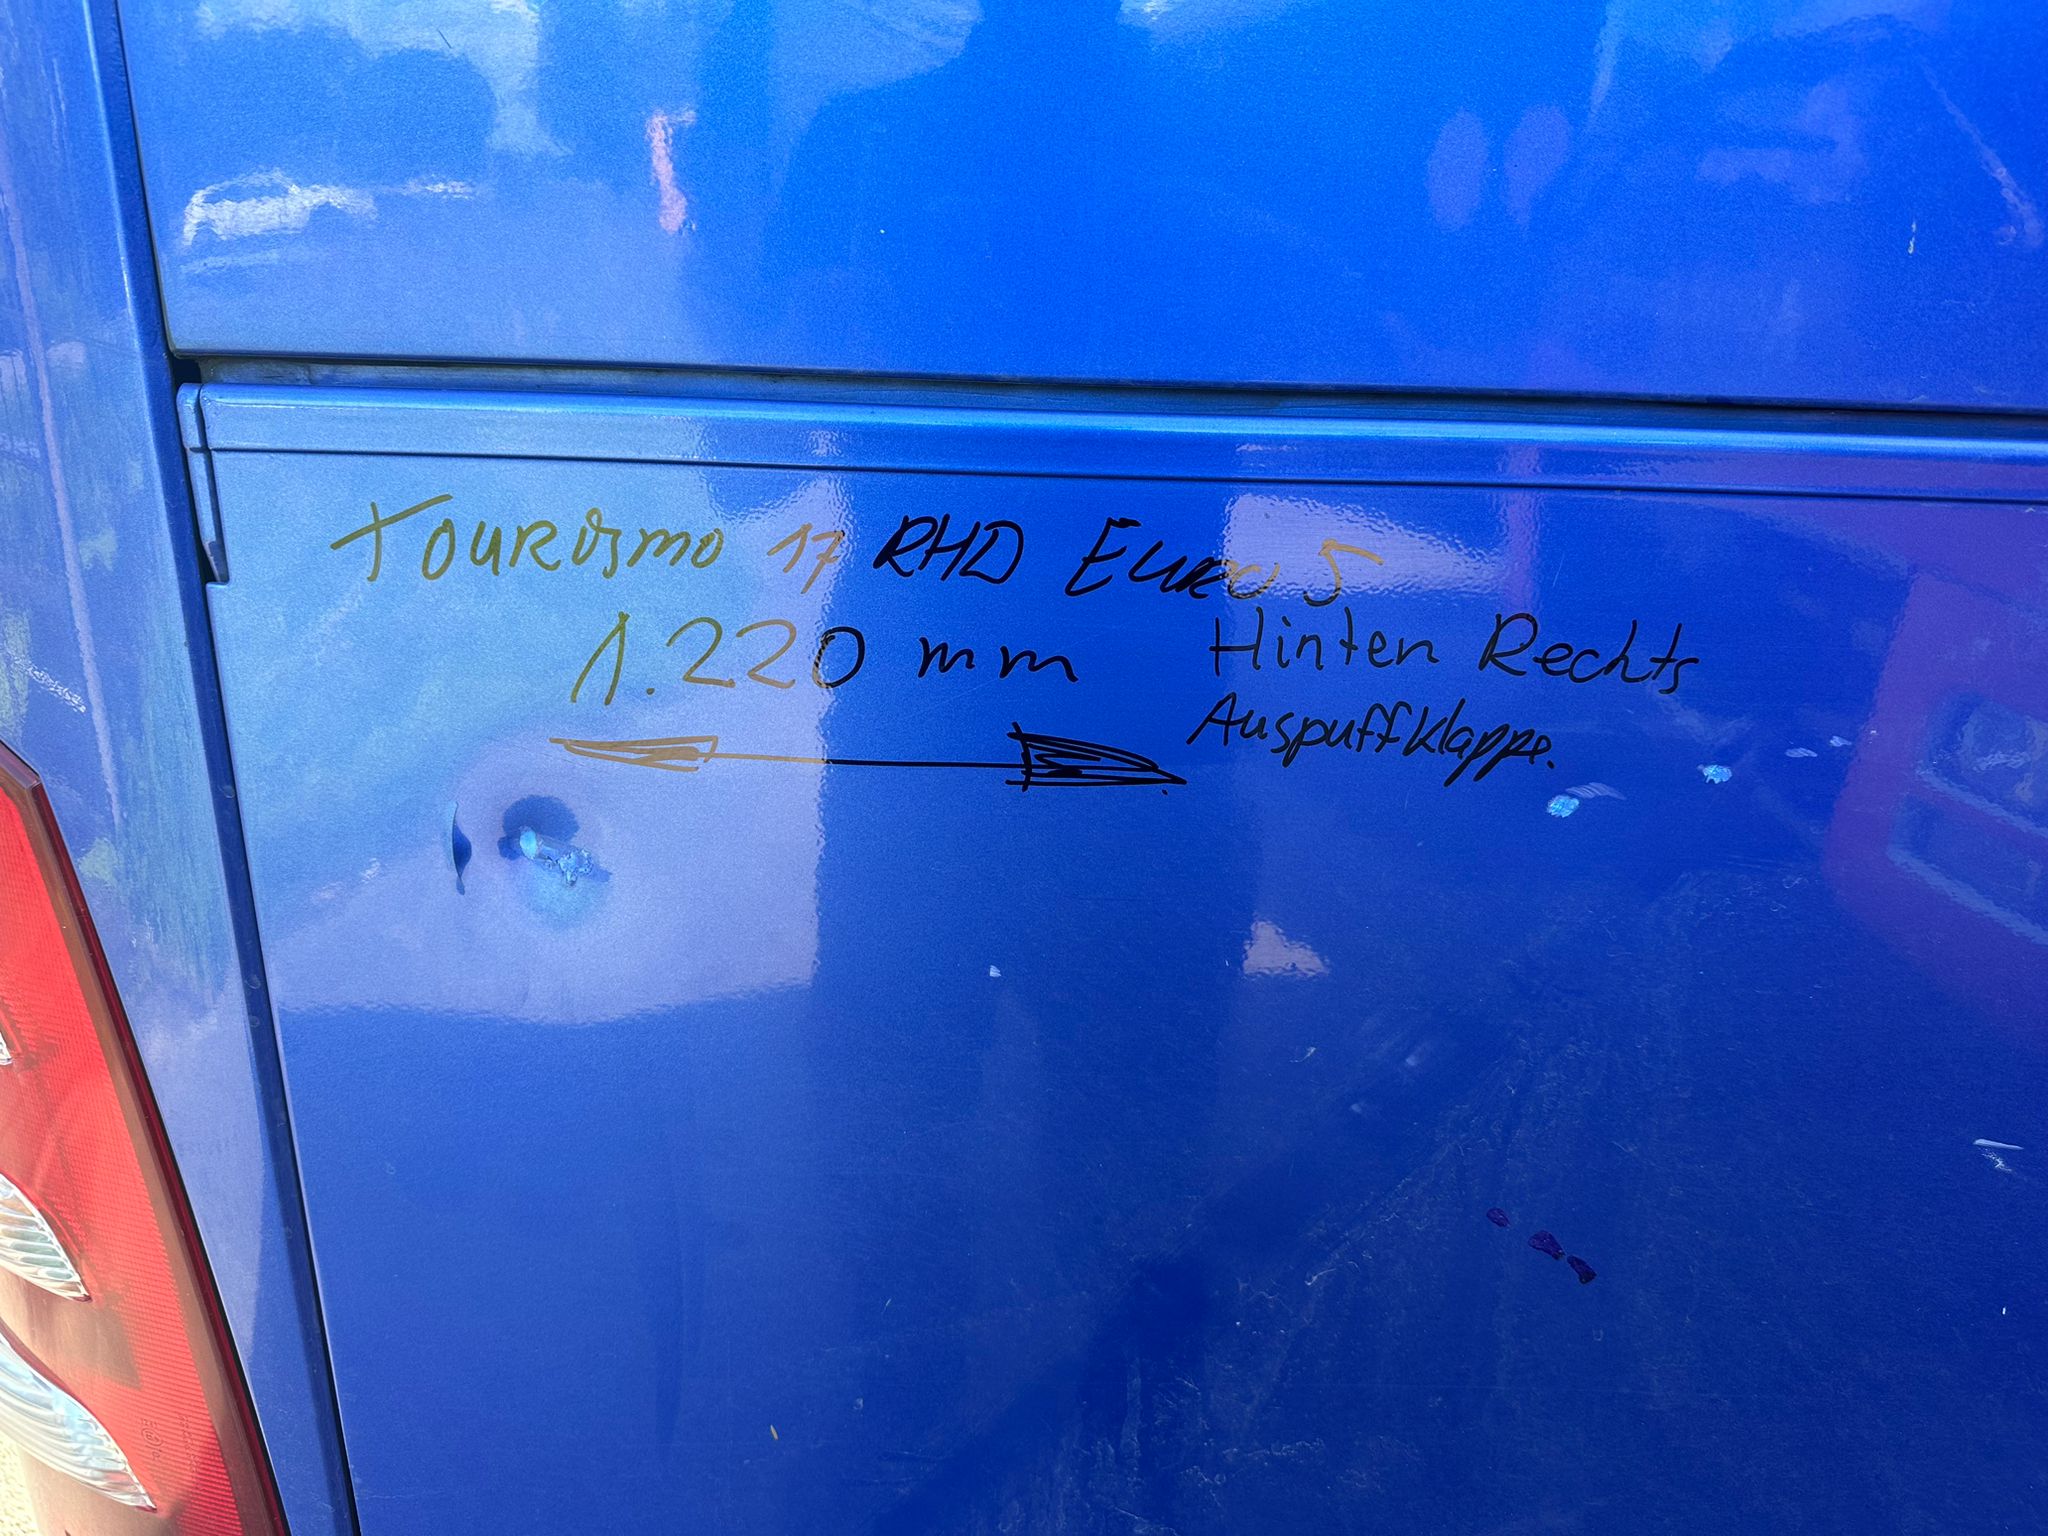 Tourismo 17 RHD Euro 5
1.220 mm
Hinten Rechts
Auspuffklappe.